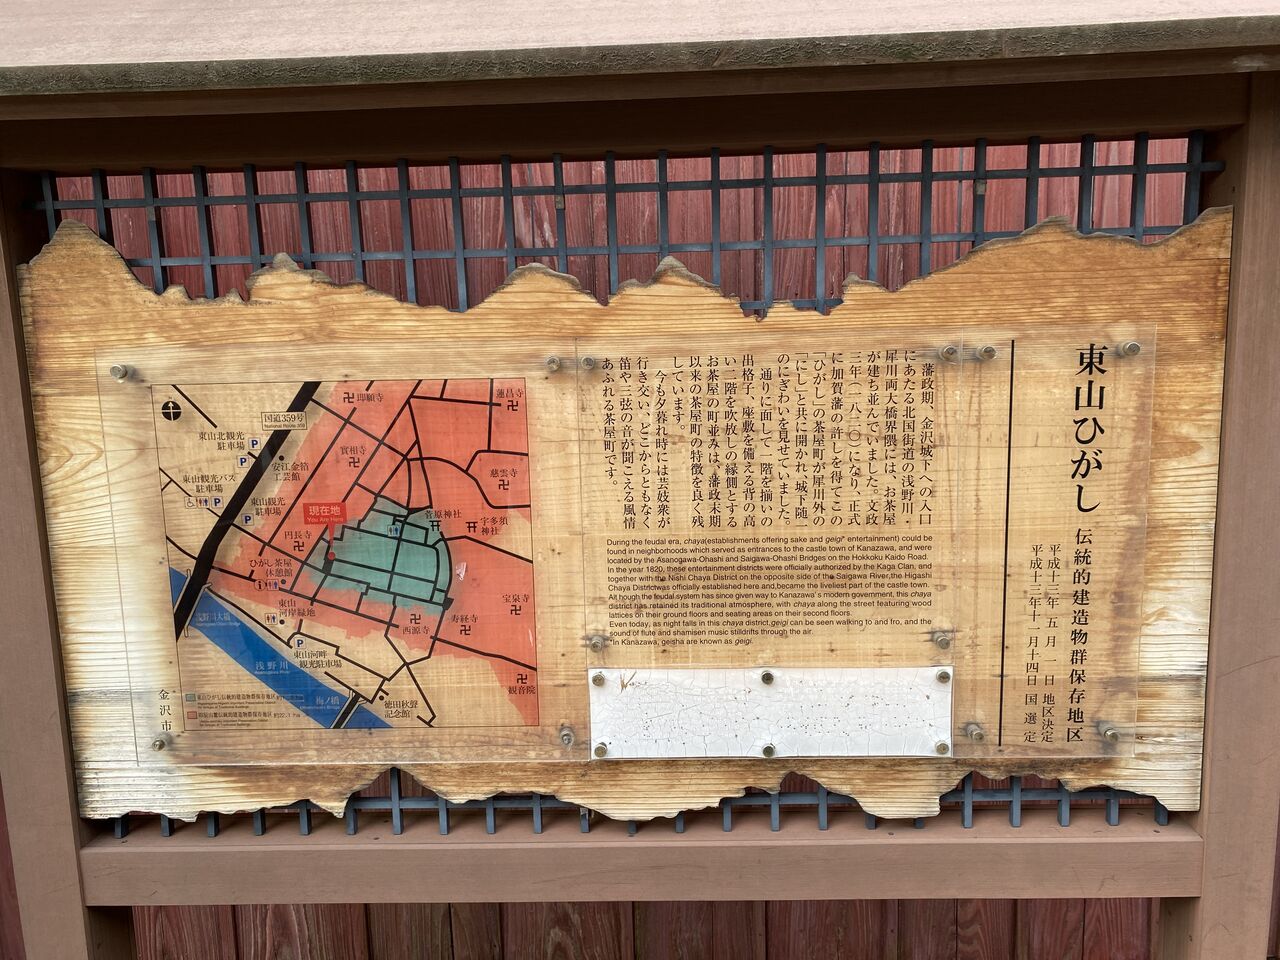 東山ひがし 伝統的建造物群保存地区
平成十三年五月一日 地区決定
平成十三年十一月十四日 国選定
藩政期、金沢城下への入口
にあたる北国街道の浅野川・
犀川両大橋界隈には、お茶屋
が建ち並んでいました。文政
三年(一八二〇)になり、正式
に加賀藩の許しを得てこの
「ひがし」の茶屋町が犀川外の
「にし」と共に開かれ、城下随一
のにぎわいを見せていました。
通りに面して一階を揃いの
出格子、座敷を備える背の高
い二階を吹放しの縁側とする
お茶屋の町並みは、藩政末期
以来の茶屋町の特徴を良く残
しています。
今も夕暮れ時には芸妓衆が
行き交い、どこからともなく
笛や三弦の音が聞こえる風情
あふれる茶屋町です。
During the feudal era, chaya(establishments offering sake and geigi* entertainment) could be
found in neighborhoods which served as entrances to the castle town of Kanazawa, and were
located by the Asanogawa-Ohashi and Saigawa-Ohashi Bridges on the Hokkoku Kaido Road.
In the year 1820, these entertainment districts were officially authorized by the Kaga Clan, and
together with the Nishi Chaya District on the opposite side of the Saigawa River,the Higashi
Chaya Districtwas officially established here and became the liveliest part of the castle town.
Alt hough the feudal system has since given way to Kanazawa's modern government, this chaya
district has retained its traditional atmosphere, with chaya along the street featuring wood
lattices on their ground floors and seating areas on their second floors.
Even today, as night falls in this chaya district,geigi can be seen walking to and fro, and the
sound of flute and shamisen music stilldrifts through the air.
*In Kanazawa, geisha are known as geigi.
国道359号
National Route 359
即願寺
蓮昌寺
東山北観光
駐車場
P
P
安江金箔
工芸館
實相寺
慈雲寺
東山観光バス
駐車場
P
東山観光
駐車場
P
現在地
You Are Here
菅原神社
宇多須
神社
円長寺
ひがし茶屋
休憩館
東山
河岸緑地
宝泉寺
寿経寺
西源寺
浅野川大橋
P
東山河畔
観光駐車場
浅野川
梅ノ橋
徳田秋聲
記念館
観音院
東山ひがし伝統的建造物群保存地区
卯辰山麓伝統的建造物群保存地区
金沢市